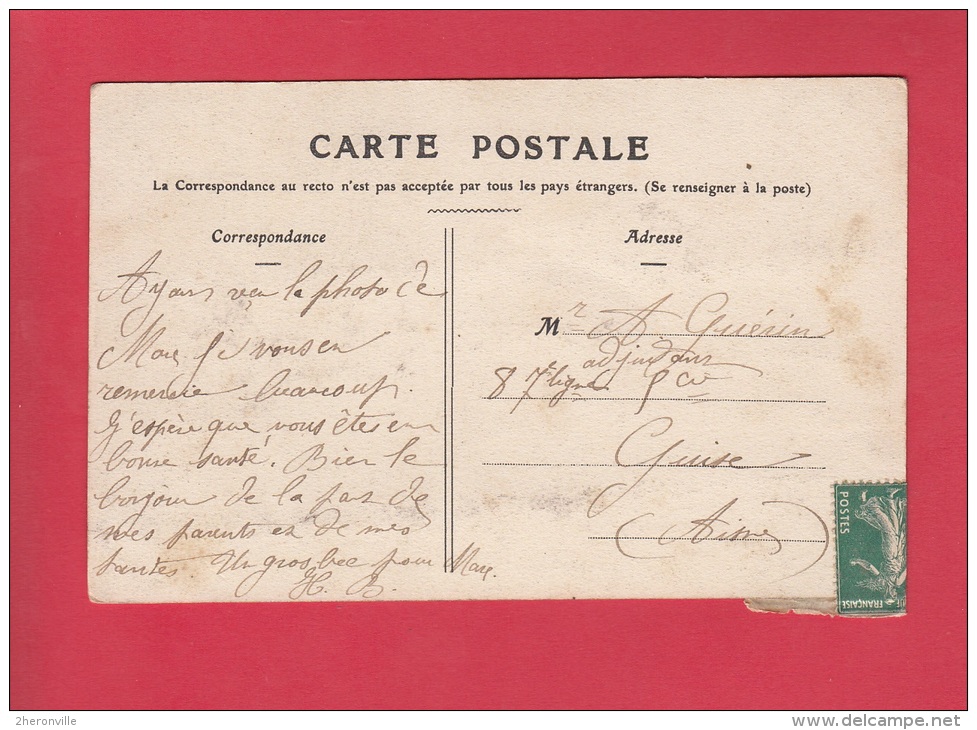 CARTE POSTALE
La Correspondance au recto n'est pas acceptée par tous les pays étrangers. (Se renseigner à la poste)
Correspondance
Ayant reçu la photo de
Marc je vous en
remercie beaucoup.
J'espère que vous êtes en
bonne santé. Bien le
bonjour de la part de
mes parents et de mes
tantes Un gros bec pour Marc.
H. B.
Adresse
Mr A Guérin
adjudant
87e ligne 5 cie
Guise
(Aisne)
POSTES
FRANÇAISE
2heronville
www.delcampe.net